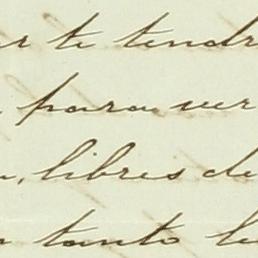 te tendr
para ver
libres de
tanto